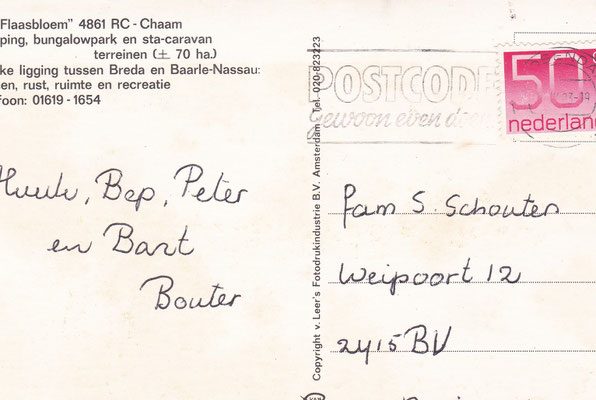 Flaasbloem" 4861 RC - Chaam
ping, bungalowpark en sta-caravan
terreinen (± 70 ha.)
ke ligging tussen Breda en Baarle-Nassau:
en, rust, ruimte en recreatie
foon: 01619 - 1654
Bep, Peter
en Bart
Bouter
Copyright v. Leer's Fotodrukindustrie B.V. Amsterdam - Tel. 020-823223
POSTCODE
Gewoon even doen
50
nederland
Fam S. Schouten
Weipoort 12
2415 BV